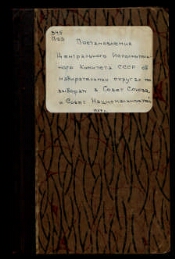 Постановление
Центрального Исполнитель-
ного Комитета СССР об
избирательных округах по
выборам в Совет Союза
и Совет Национальностей